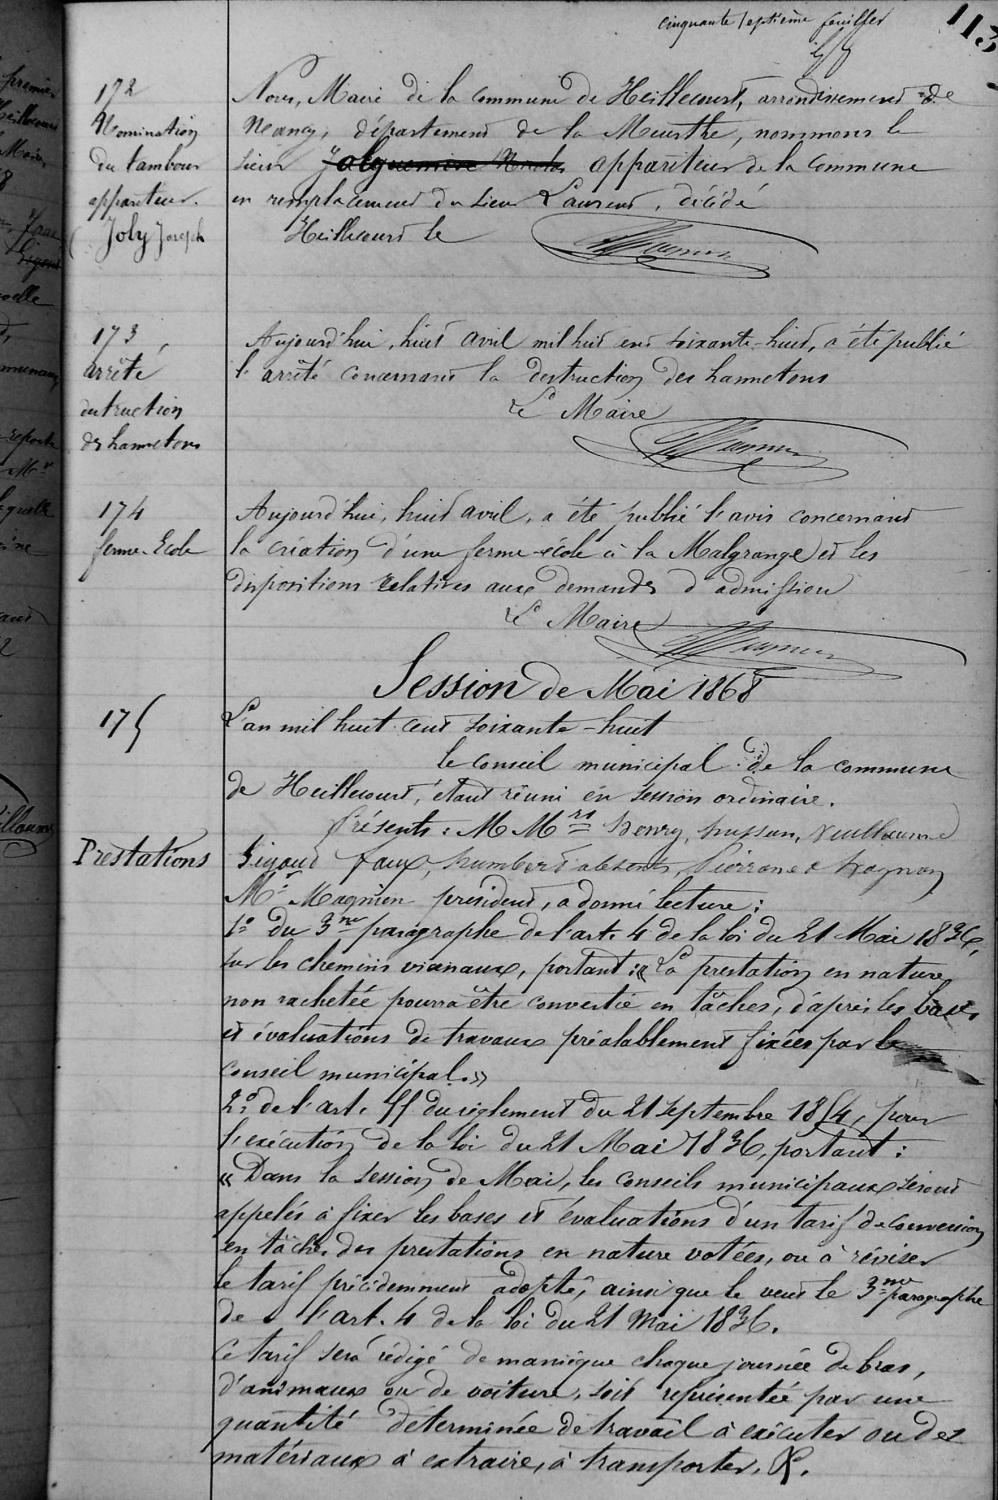 cinquante septième feuillet
113
172
Nomination
du tambour
appariteur.
Joly Joseph
Nous, Maire de la commune de Heillecourt, arrondissement de
Nancy, département de la Meurthe, nommons le
sieur appariteur de la Commune
en remplacement du sieur Laurent, décédé
Heillecourt le
173
arrêté
destruction
des hannetons
Aujourd'hui, huit avril mil huit cent soixante-huit, a été publié
l'arrêté concernant la destruction des hannetons
Le Maire
174
ferme-Ecole
Aujourd'hui, huit avril, a été publié l'avis concernant
la création d'une ferme-école à la Malgrange et les
dispositions relatives aux demandes d'admission
Le Maire
Session de Mai 1868
175
L'an mil huit cent soixante-huit
le conseil municipal de la commune
de Heillecourt, étant réuni en session ordinaire.
Présents: M Mrs Henry, husson, Vuillaume
Prestations
Sigaud faux, humbert absents, Pierron &
Mr Magnien président, a donné lecture:
1o du 3me paragraphe de l'art. 4 de la loi du 21 Mai 1836,
sur les chemins vicinaux, portant: « La prestation en nature
non rachetée pourra être convertie en tâches, d'après les bases
et évaluations de travaux préalablement fixées par le
conseil municipal. »
2o de l'art. 55 du règlement du 21 septembre 1854, pour
l'exécution de la loi du 21 Mai 1836, portant:
« Dans la session de Mai, les conseils municipaux seront
appelés à fixer les bases et évaluations d'un tarif de conversion
en tâches des prestations en nature votées, ou à réviser
le tarif précédemment adopté, ainsi que le veut le 3me paragraphe
de l'art. 4 de la loi du 21 Mai 1836.
Ce tarif sera rédigé de manièque chaque journée de bras,
d'animaux ou de voiture, soit représentée par une
quantité déterminée de travail à exécuter ou des
matériaux à extraire, à transporter, &.